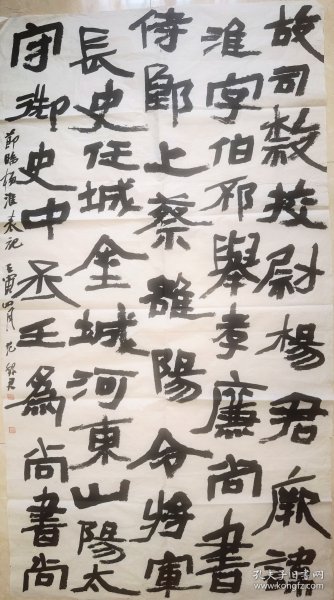 故司隸校尉楊君厥諱
淮字伯邳舉孝廉尚書
侍郎上蔡雒陽令將軍
長史任城金城河東山陽太
守御史中丞三為尚書尚
節臨楊淮表記 壬寅四月
孔夫子旧书网
www.kongfz.com